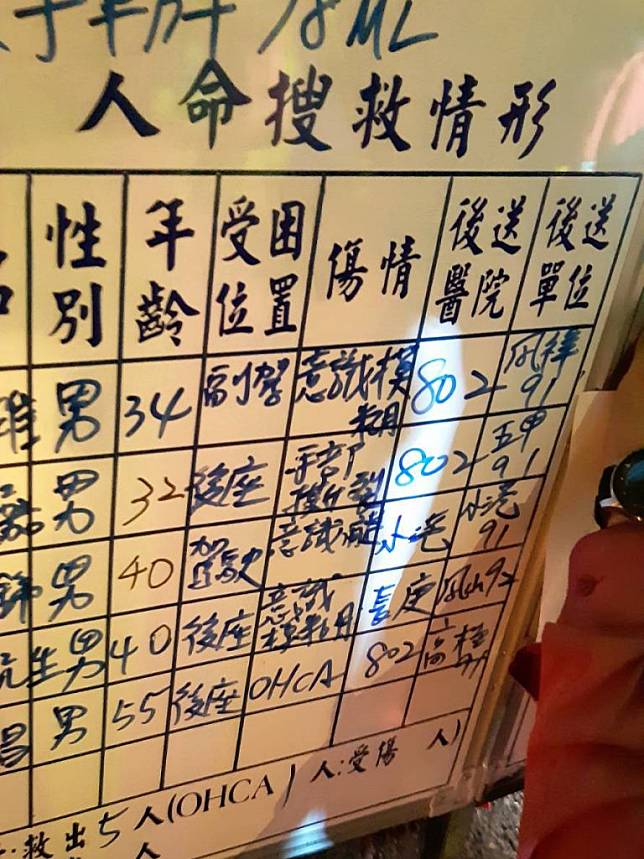 人命搜救情形
性別 年齡 受困位置 傷情 後送醫院 後送單位
雄 男 34 副駕 意識模糊 802 鳳祥91
男 32 後座 手部撕裂 802 五甲91
男 40 駕駛 意識清醒 小港 小港91
生 男 40 後座 意識模糊 長庚 鳳山92
昌 男 55 後座 OHCA 802 高桂91
救出5人(OHCA 1人:受傷 人)
人